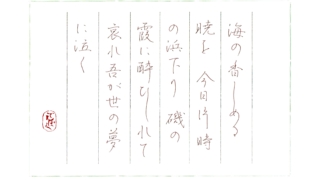 海の香しめる
暁を 今日汐時
の浜下り 磯の
霞に酔ひしれて
哀れ吾が世の夢
に泣く